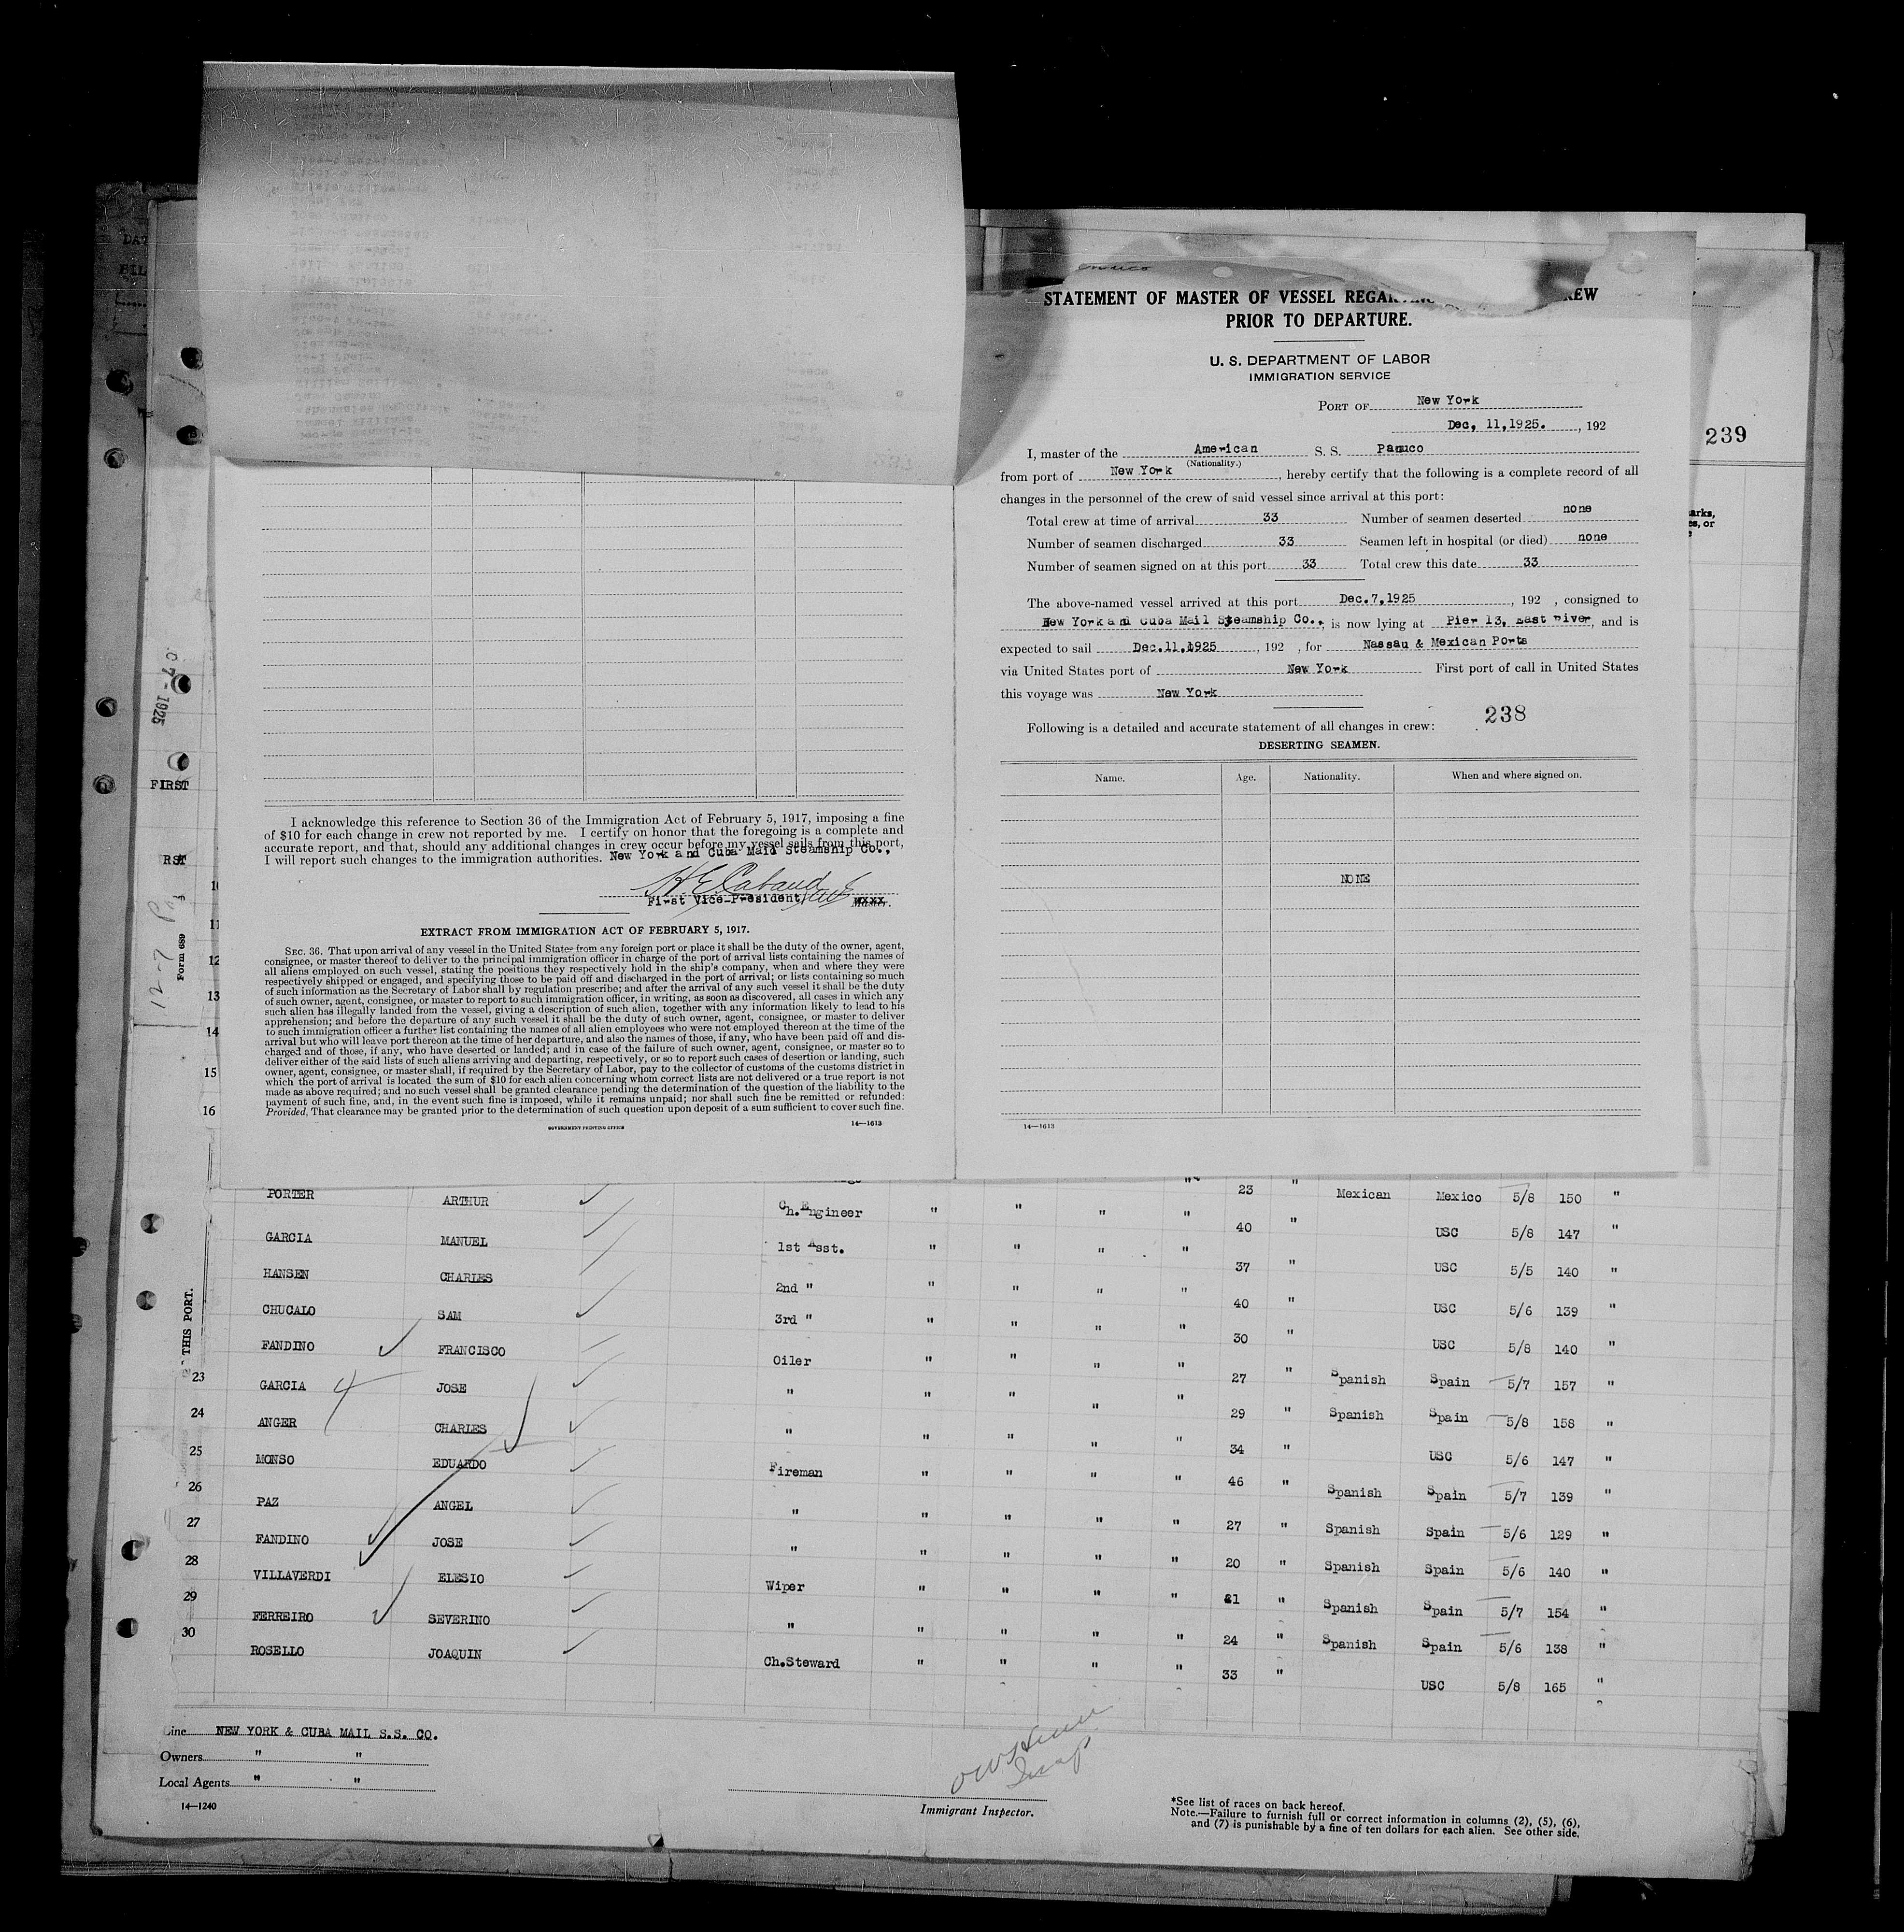 I acknowledge this reference to Section 36 of the Immigration Act of February 5, 1917, imposing a fine
of $10 for each change in crew not reported by me. I certify on honor that the foregoing is a complete and
accurate report, and that, should any additional changes in crew occur before my vessel sails from this port,
I will report such changes to the immigration authorities. New York and Cuba Mail Steamship Co.,
H E Cabaud
First Vice-President,
EXTRACT FROM IMMIGRATION ACT OF FEBRUARY 5, 1917.
SEC. 36. That upon arrival of any vessel in the United States from any foreign port or place it shall be the duty of the owner, agent,
consignee, or master thereof to deliver to the principal immigration officer in charge of the port of arrival lists containing the names of
all aliens employed on such vessel, stating the positions they respectively hold in the ship's company, when and where they were
respectively shipped or engaged, and specifying those to be paid off and discharged in the port of arrival; or lists containing so much
of such information as the Secretary of Labor shall by regulation prescribe; and after the arrival of any such vessel it shall be the duty
of such owner, agent, consignee, or master to report to such immigration officer, in writing, as soon as discovered, all cases in which any
such alien has illegally landed from the vessel, giving a description of such alien, together with any information likely to lead to his
apprehension; and before the departure of any such vessel it shall be the duty of such owner, agent, consignee, or master to deliver
to such immigration officer a further list containing the names of all alien employees who were not employed thereon at the time of the
arrival but who will leave port thereon at the time of her departure, and also the names of those, if any, who have been paid off and dis-
charged and of those, if any, who have deserted or landed; and in case of the failure of such owner, agent, consignee, or master so to
deliver either of the said lists of such aliens arriving and departing, respectively, or so to report such cases of desertion or landing, such
owner, agent, consignee, or master shall, if required by the Secretary of Labor, pay to the collector of customs of the customs district in
which the port of arrival is located the sum of $10 for each alien concerning whom correct lists are not delivered or a true report is not
made as above required; and no such vessel shall be granted clearance pending the determination of the question of the liability to the
payment of such fine, and, in the event such fine is imposed, while it remains unpaid; nor shall such fine be remitted or refunded:
Provided, That clearance may be granted prior to the determination of such question upon deposit of a sum sufficient to cover such fine.
GOVERNMENT PRINTING OFFICE 14—1613
STATEMENT OF MASTER OF VESSEL
PRIOR TO DEPARTURE.
U. S. DEPARTMENT OF LABOR
IMMIGRATION SERVICE
PORT OF New York
Dec, 11,1925. , 192
239
I, master of the American S. S. Panuco
(Nationality.)
from port of New York , hereby certify that the following is a complete record of all
changes in the personnel of the crew of said vessel since arrival at this port:
Total crew at time of arrival 33 Number of seamen deserted none
Number of seamen discharged 33 Seamen left in hospital (or died) none
Number of seamen signed on at this port 33 Total crew this date 33
The above-named vessel arrived at this port Dec.7,1925 , 192 , consigned to
New York and Cuba Mail Steamship Co., is now lying at Pier 13, East River, and is
expected to sail Dec.11,1925 , 192 , for Nassau & Mexican Ports
via United States port of New York First port of call in United States
this voyage was New York
238
Following is a detailed and accurate statement of all changes in crew:
DESERTING SEAMEN.
Name. Age. Nationality. When and where signed on.
NONE
14—1613
7 - 1925
FIRST
12-7
Form 689
11
12
13
14
15
16
THIS PORT.
PORTER ARTHUR Ch.Engineer " " " " 23 " Mexican Mexico 5/8 150 "
GARCIA MANUEL 1st Asst. " " " " 40 " USC 5/8 147 "
HANSEN CHARLES 2nd " " " " " 37 " USC 5/5 140 "
CHUCALO SAM 3rd " " " " " 40 " USC 5/6 139 "
FANDINO FRANCISCO Oiler " " " " 30 " USC 5/8 140 "
23 GARCIA JOSE " " " " " 27 " Spanish Spain 5/7 157 "
24 ANGER CHARLES " " " " " 29 " Spanish Spain 5/8 158 "
25 MONSO EDUARDO Fireman " " " " 34 " USC 5/6 147 "
26 PAZ ANGEL " " " " " 46 " Spanish Spain 5/7 139 "
27 FANDINO JOSE " " " " " 27 " Spanish Spain 5/6 129 "
28 VILLAVERDI ELESIO Wiper " " " " 20 " Spanish Spain 5/6 140 "
29 FERREIRO SEVERINO " " " " " 21 " Spanish Spain 5/7 154 "
30 ROSELLO JOAQUIN Ch.Steward " " " " 24 " Spanish Spain 5/6 138 "
33 " USC 5/8 165 "
Line NEW YORK & CUBA MAIL S.S. CO.
Owners " "
Local Agents " "
14—1240
Immigrant Inspector.
*See list of races on back hereof.
Note.—Failure to furnish full or correct information in columns (2), (5), (6),
and (7) is punishable by a fine of ten dollars for each alien. See other side.